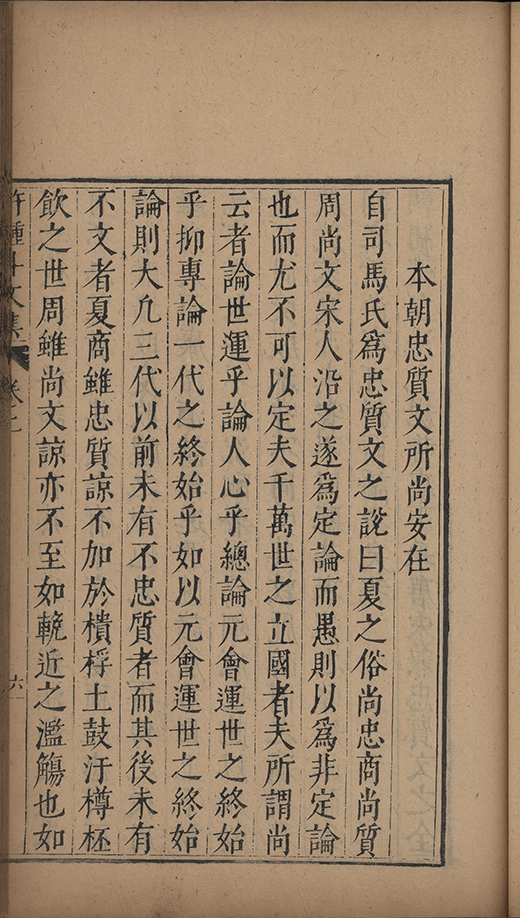 本朝忠質文所尚安在
自司馬氏爲忠質文之說曰夏之俗尚忠商尚質
周尚文宋人沿之遂爲定論而愚則以爲非定論
也而尤不可以定夫千萬世之立國者夫所謂尚
云者論世運乎論人心乎總論元會運世之終始
乎抑專論一代之終始乎如以元會運世之終始
論則大凢三代以前未有不忠質者而其後未有
不文者夏商雖忠質諒不加於樻桴土鼓汙樽柸
飲之世周雖尚文諒亦不至如輓近之濫觴也如
許鍾斗文集 卷之二 六